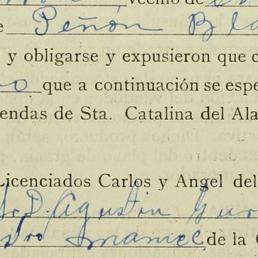 vecino de
e Peñón Bla
y obligarse y expusieron que c
o que a continuación se espe
endas de Sta. Catalina del Ala
Licenciados Carlos y Angel del
D. Agustín
Manuel de la C